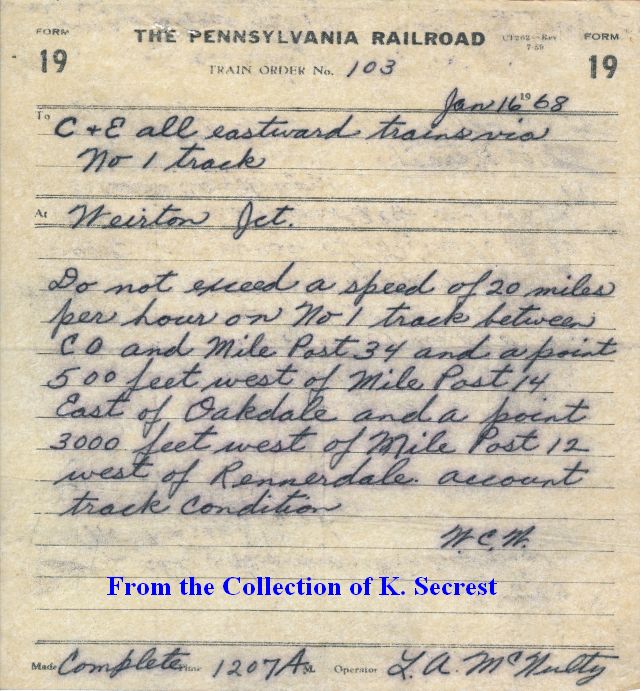 FORM 19
THE PENNSYLVANIA RAILROAD
CT262—Rev 7-59
FORM 19
TRAIN ORDER No. 103
Jan 16 19 68
To C + E all eastward trains via
No 1 track
At Weirton Jct.
Do not exceed a speed of 20 miles
per hour on No 1 track between
CO and Mile Post 34 and a point
500 feet west of Mile Post 14
East of Oakdale and a point
3000 feet west of Mile Post 12
west of Rennerdale. account
track condition
W.C.W.
From the Collection of K. Secrest
Made Complete Time 1207 A M. Operator L. A. McNulty